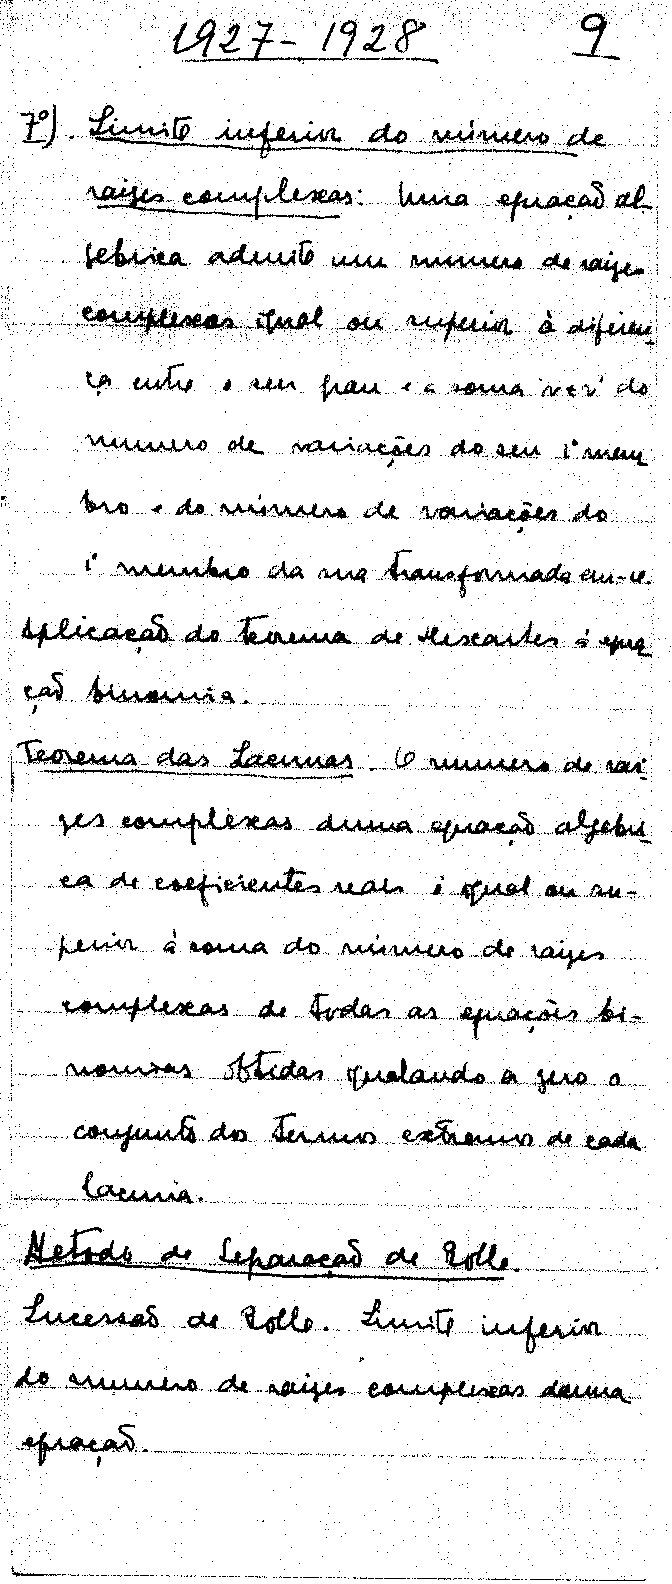 1927-1928 9
7º). Limite inferior do número de
raizes complexas: Uma equação al-
gebrica admite um numero de raizes
complexas igual ou superior à diferen-
ça entre o seu grau e a soma v+v' do
numero de variações do seu 1º mem
bro e do número de variações do
1º membro da sua transformada em -x.
Aplicação do teorema de Descartes á equa
ção binomia.
Teorema das Lacunas. O numero de rai-
zes complexas duma equação algebri-
ca de coeficientes reais é igual ou su-
perior á soma do número de raizes
complexas de todas as equações bi-
nomias obtidas igualando a zero o
conjunto dos termos extremos de cada
lacuna.
Metodo de Separação de Rolle.
Sucessão de Rolle. Limite inferior
do numero de raizes complexas duma
equação.